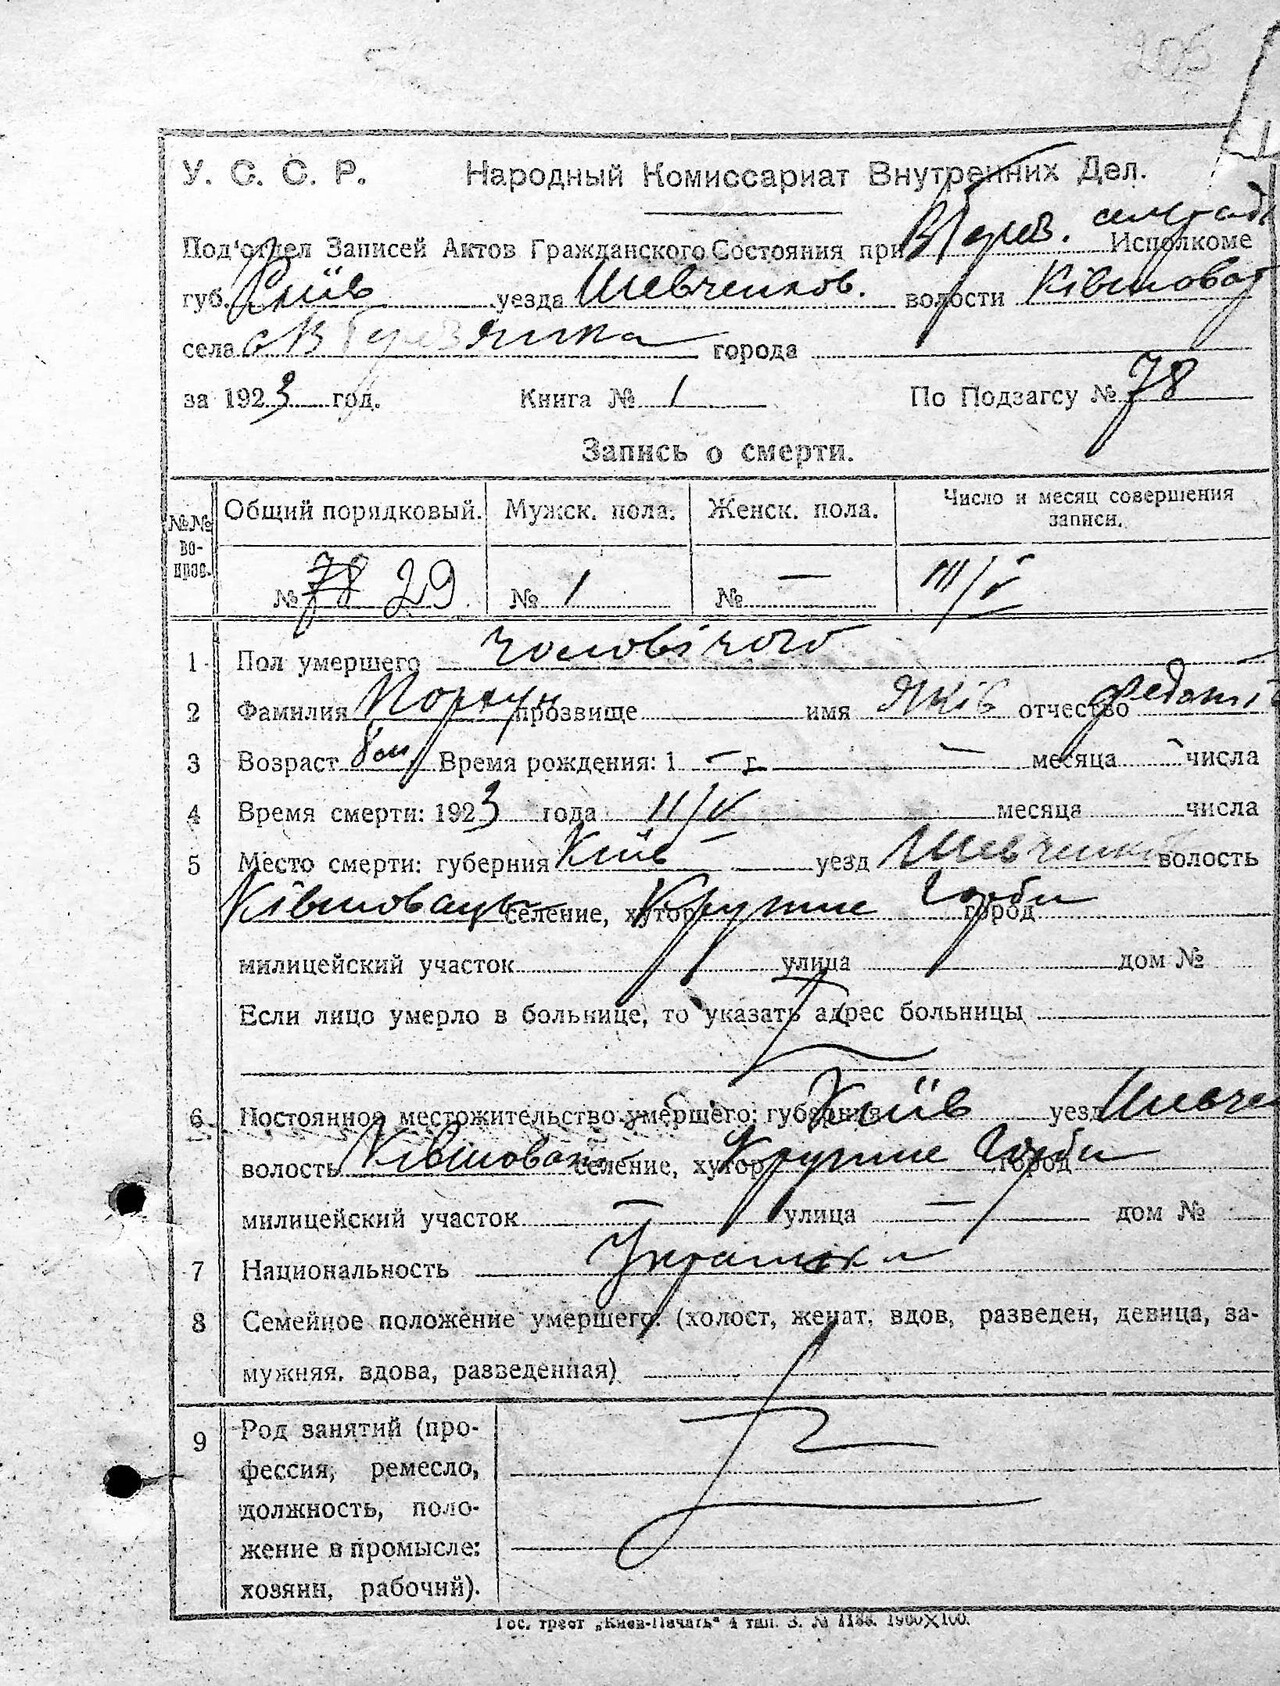 205
У. С. С. Р. Народный Комиссариат Внутренних Дел.
Под‘отдел Записей Актов Гражданского Состояния при Исполкоме
губ. Київ уезда Шевченков. волости Ківшоват
села города
за 1923 год. Книга № 1 По Подзагсу № 78
Запись о смерти.
№№ вопрос. Общий порядковый. Мужск. пола. Женск. пола. Число и месяц совершения записи.
№ 78 29 № 1 № — III/V
1 Пол умершего чоловічого
2 Фамилия прозвище имя Яків отчество
3 Возраст Время рождения: 1 — г. — месяца — числа
4 Время смерти: 1923 года II/V месяца числа
5 Место смерти: губерния Київ уезд Шевченків волость
селение, хутор Крутие Горби город
милицейский участок улица дом №
Если лицо умерло в больнице, то указать адрес больницы
6 Постоянное местожительство умершего: губерния Київ уезд Шевчен
волость селение, хутор Крутие Горби город
милицейский участок — улица — дом №
7 Национальность
8 Семейное положение умершего: (холост, женат, вдов, разведен, девица, за-
мужняя, вдова, разведенная)
9 Род занятий (про-
фессия, ремесло,
должность, поло-
жение в промысле:
хозяин, рабочий).
Гос. трест „Киев-Печать“ 4 тип. З. № 1188. 1900Х100.